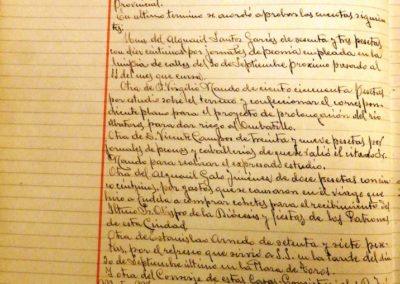 Provincial.
En ultimo termino se acordó aprobar las cuentas siguien
tes:
Una del Alguacil Santos Garcés de sesenta y tres pesetas
con diez centimos por jornales de peonía empleada en la
limpia de calles del 30 de Septiembre proximo pasado al
11 del mes que cursa.
Otra de D. Virgilio Mando de ciento cincuenta pesetas
por estudio sobre el terreno y confeccionar el correspon
diente plano para el proyecto de prolongación del rio
albatara, para dar riego al
Otra de D. Vicente Campos de treinta y nueve pesetas por
jornales de peones y caballerias de que se valió el citado Sr.
Mando para realizar el expresado estudio.
Otra del Alguacil Galo Jimenez de doce pesetas con cin
co centimos, por gastos que se causaron en el viaje que
hizo a Tudela a comprar cohetes para el recibimiento del
Iltmo. Sr. Obispo de la Diócesis y fiestas de los Patronos
de esta Ciudad.
Otra de Estanislao Arnedo de setenta y siete pese
tas, por el refresco que sirvió a S.S. en la tarde del dia
30 de Septiembre último en la Plaza de Toros.
Y otra del Conserje de estas Casas Consistoriales